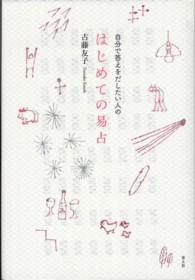 自分で答えをだしたい人の
はじめての易占
古藤友子